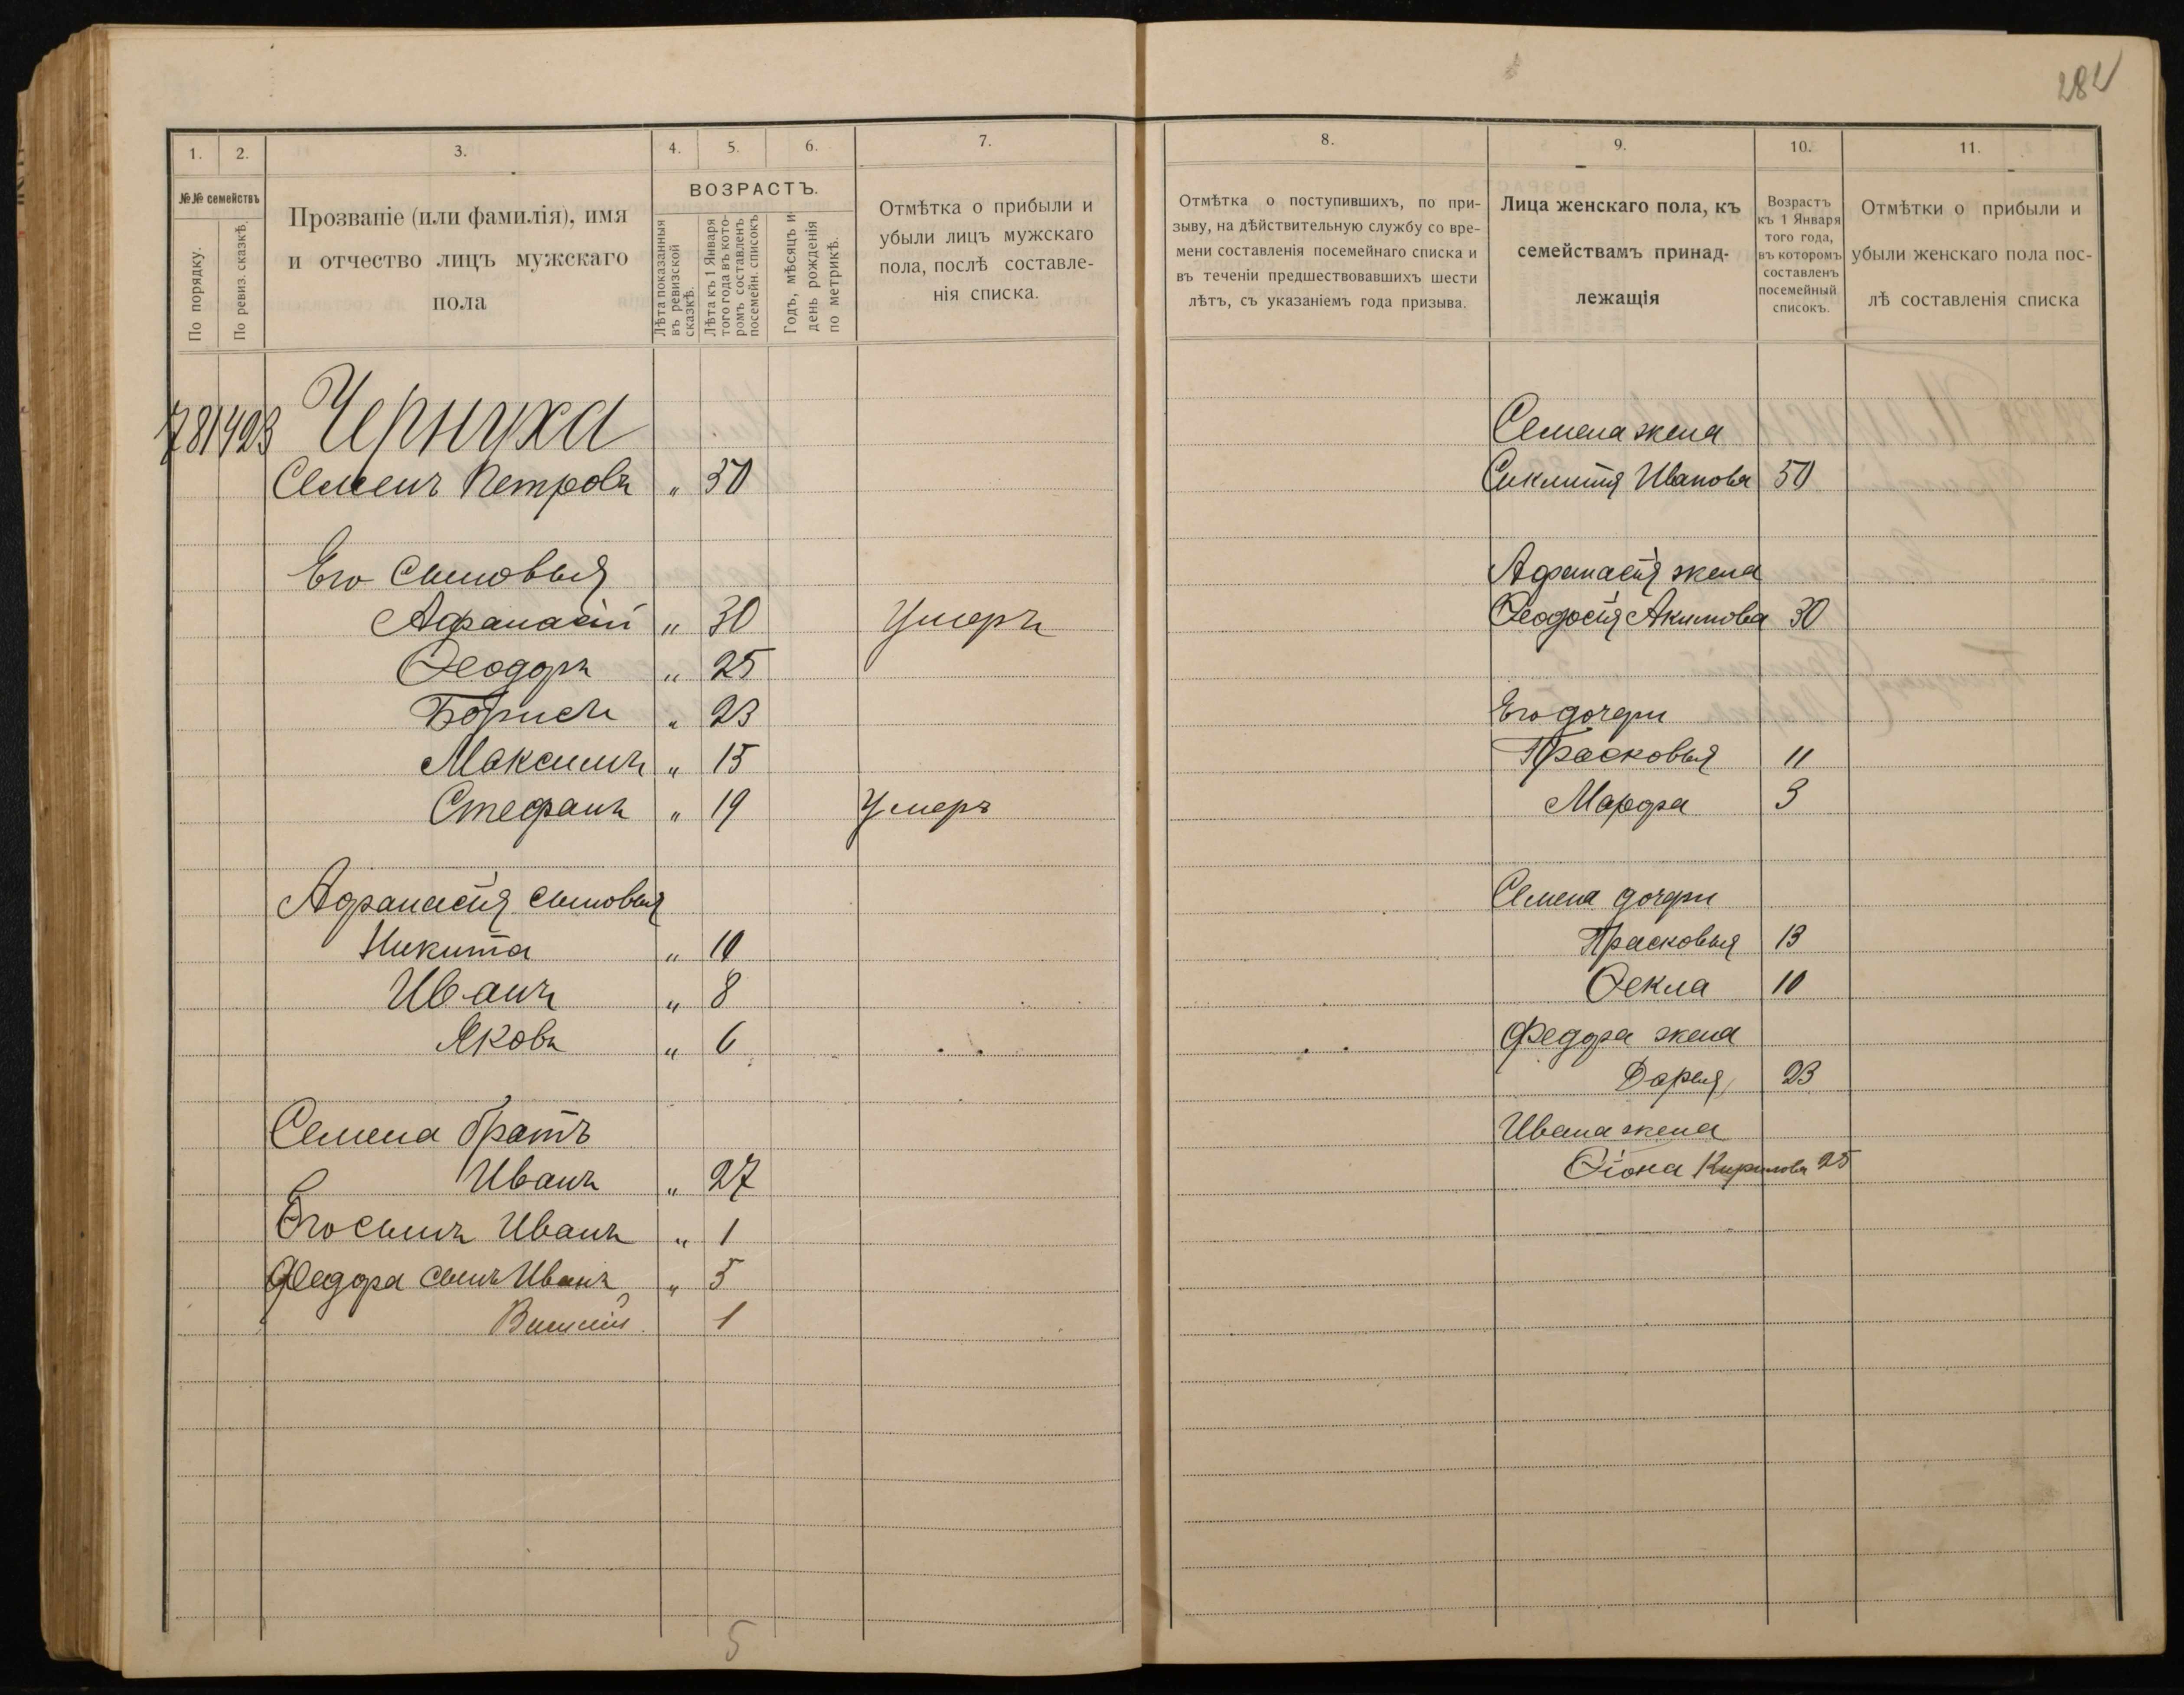 282
1.
2.
3.
4.
5.
6.
7.
№№ семействъ
По порядку.
По ревиз. сказкѣ.
Прозваніе (или фамилія), имя
и отчество лицъ мужскаго
пола
ВОЗРАСТЪ.
Лѣта показанныя
въ ревизской
сказкѣ.
Лѣта къ 1 Января
того года въ кото-
ромъ составленъ
посемейн. списокъ
Годъ, мѣсяцъ и
день рожденія
по метрикѣ.
Отмѣтка о прибыли и
убыли лицъ мужскаго
пола, послѣ составле-
нія списка.
781 423 Чернуха
Семенъ Петровъ " 50
Его сыновья
Афанасій " 30 Умеръ
Ѳеодоръ " 25
Борисъ " 23
Максимъ " 15
Стефанъ " 19 Умеръ
Афанасія сыновья
Никита " 10
Иванъ " 8
Яковъ " 6
Семена братъ
Иванъ " 27
Его сынъ Иванъ " 1
Федора сынъ Иванъ " 5
1
5
8.
9.
10.
11.
Отмѣтка о поступившихъ, по при-
зыву, на дѣйствительную службу со вре-
мени составленія посемейнаго списка и
въ теченіи предшествовавшихъ шести
лѣтъ, съ указаніемъ года призыва.
Лица женскаго пола, къ
семействамъ принад-
лежащія
Возрастъ
къ 1 Января
того года,
въ которомъ
составленъ
посемейный
списокъ.
Отмѣтки о прибыли и
убыли женскаго пола пос-
лѣ составленія списка
Семена жена
Сиклитія Иванова 50
Афанасія жена
Ѳеодосія Акимова 30
Его дочери
Прасковья 11
Марфа 3
Семена дочери
Прасковья 13
Ѳекла 10
Федора жена
Дарья 23
Ивана жена
Ѳіона Кирилова 25